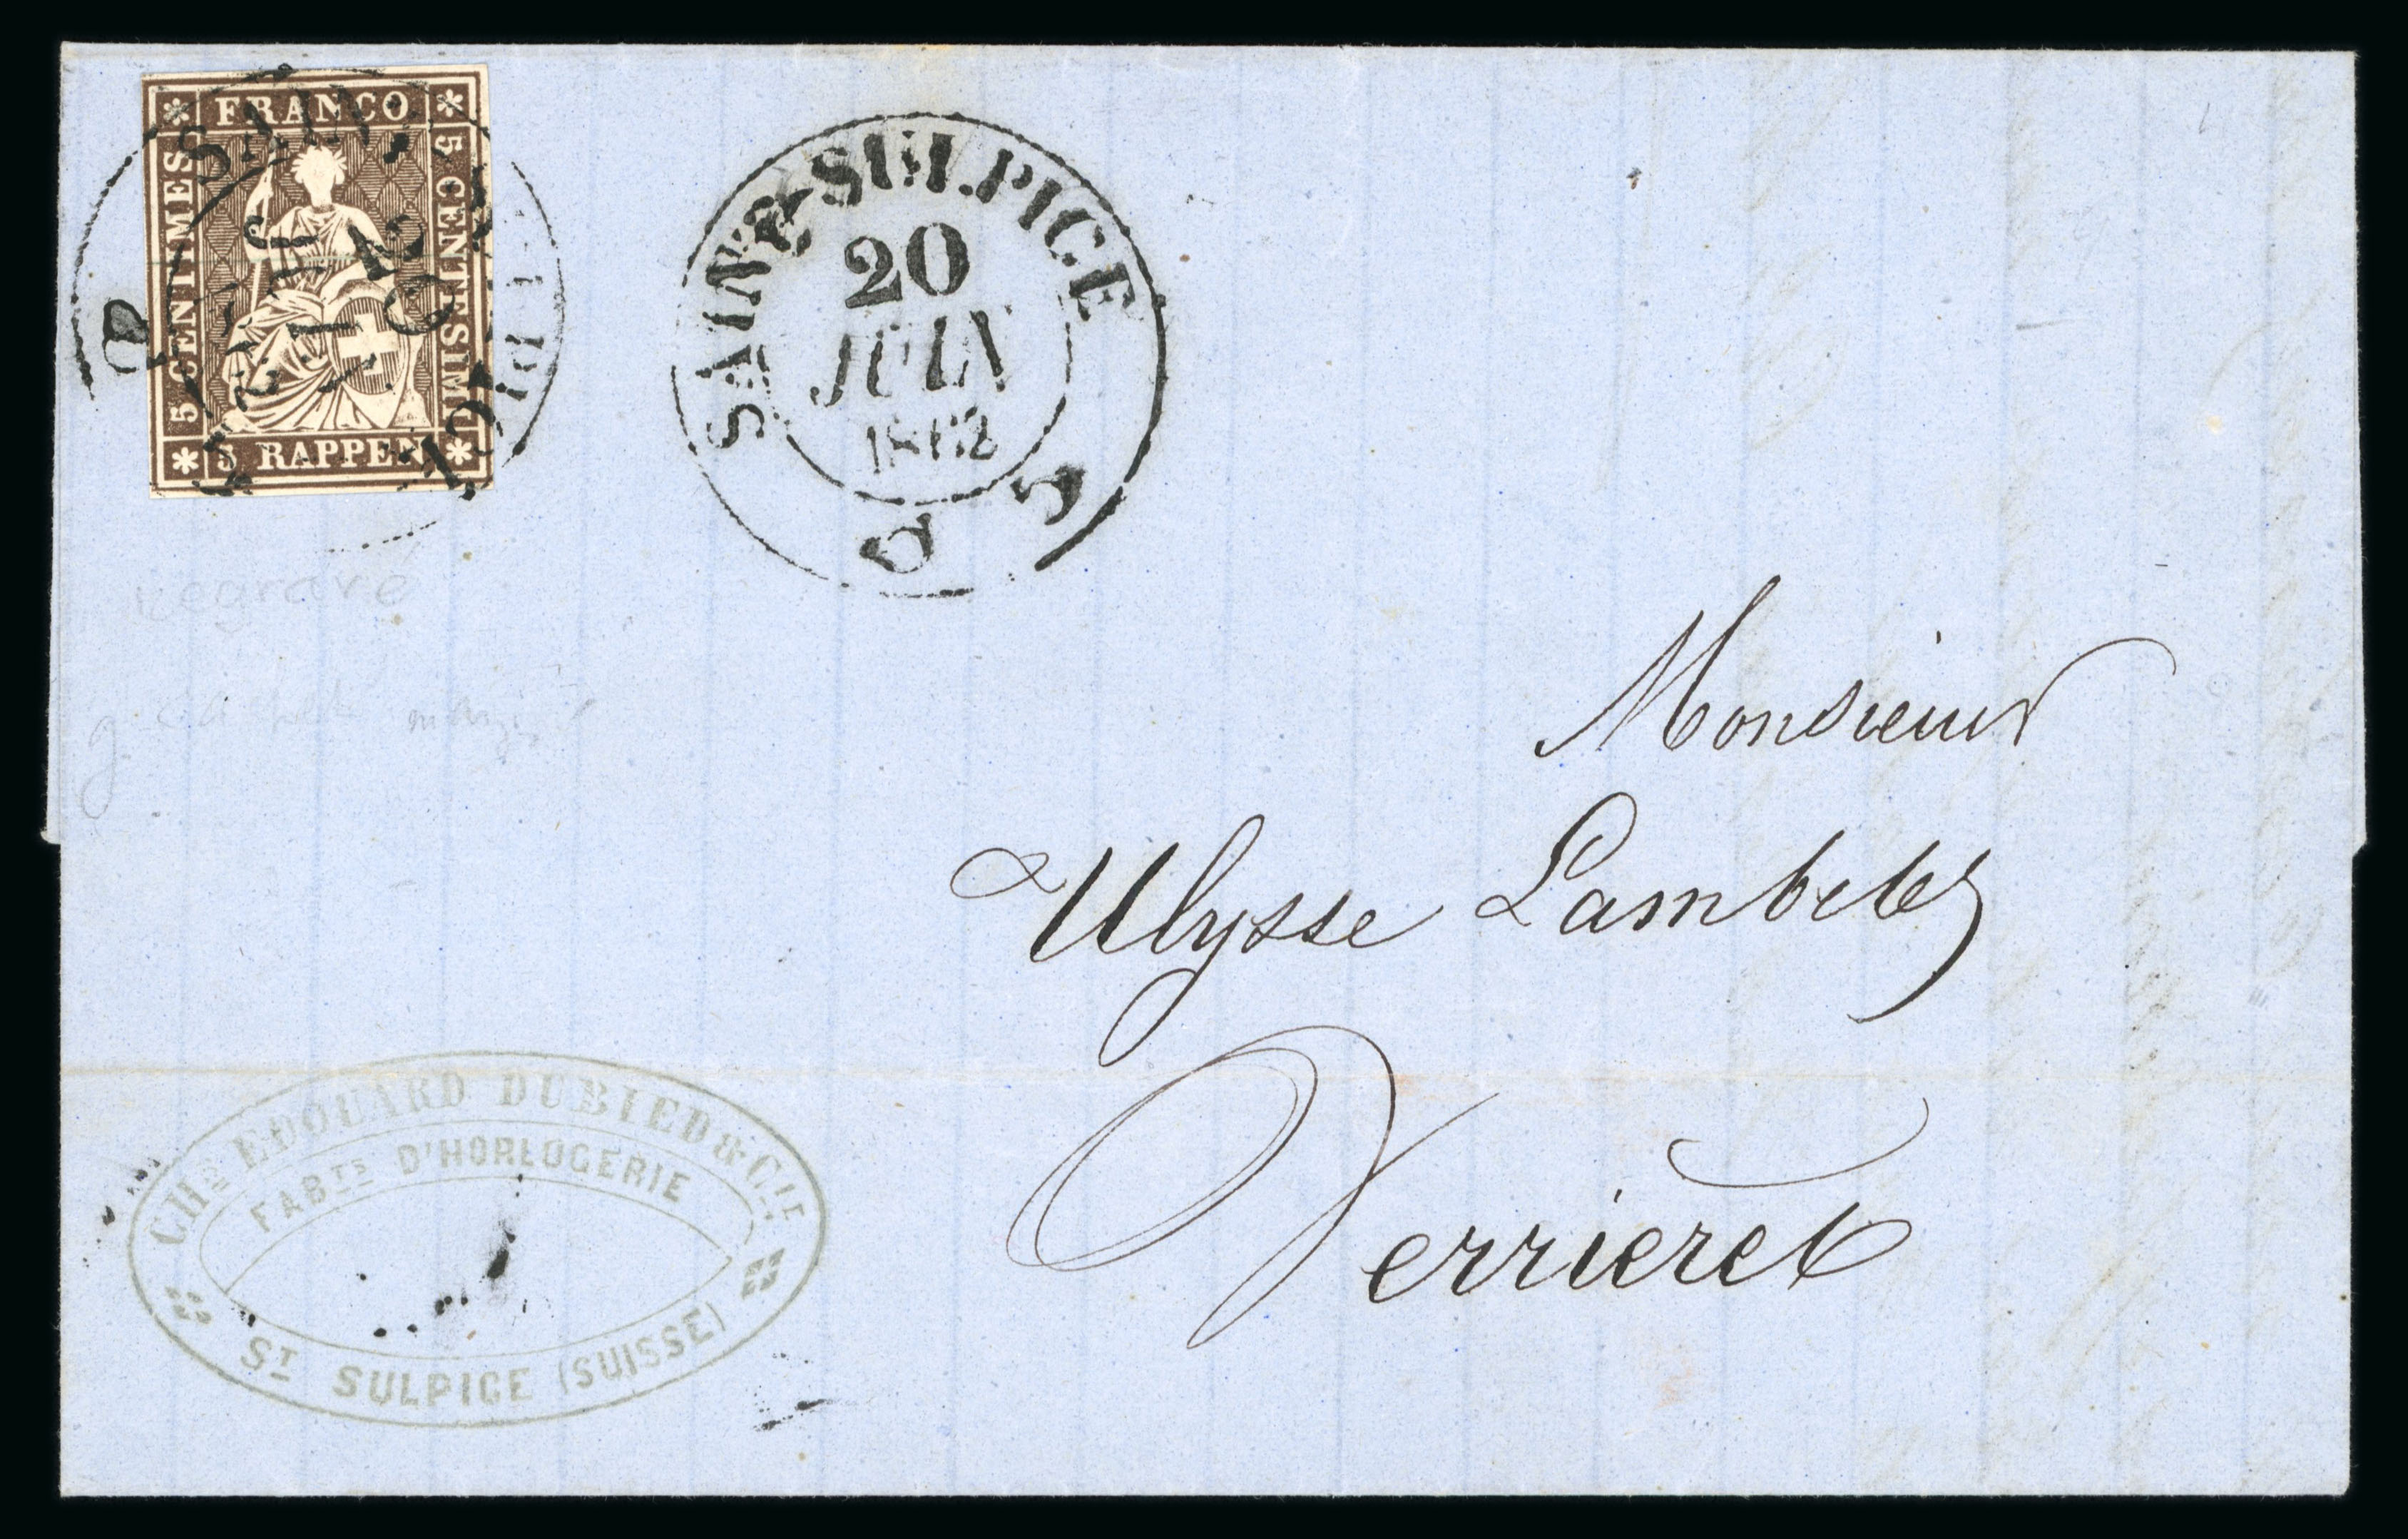 FRANCO
5 CENTIMES
5 CENTESIMI
5 RAPPEN
SAINT SULPICE
20
JUIN
1862
Monsieur
Ulysse Lambelet
Verrieres
CHS EDOUARD DUBIED & CIE
FABTS D'HORLOGERIE
ST SULPICE (SUISSE)